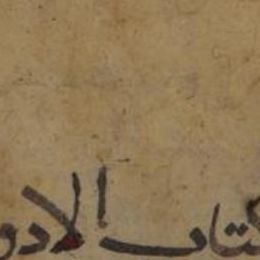 كتاب الادو